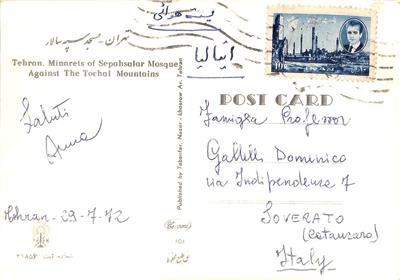 تهران - مسجد سپهسالار
Tehran. Minarets of Sepahsalar Mosque
Against The Tochal Mountains
پست هوائی
ایتالیا
POST CARD
Saluti
Anna
Tehran-29-7-72
Published by Tabanfar, Naser-khosrow Av. Tehran
101
Famiglia Professor
Gallelli Domenico
via Indipendenza 7
SOVERATO
(Catanzaro)
Italy